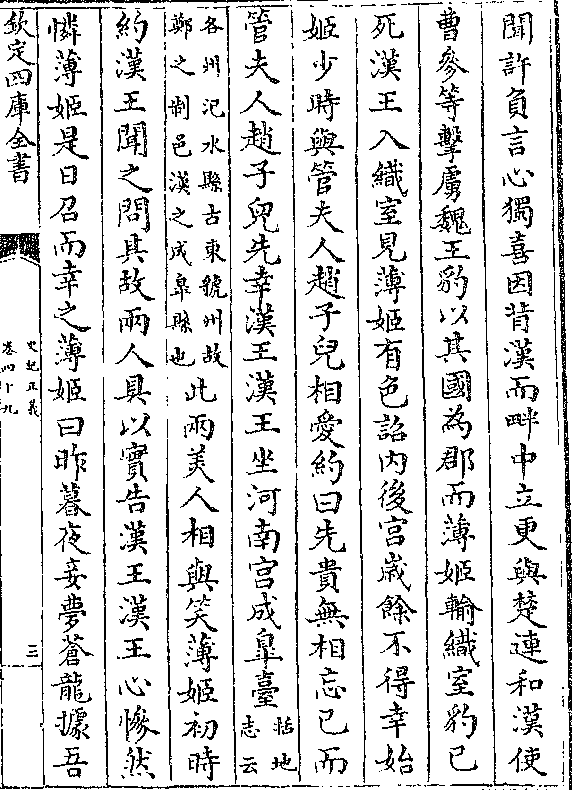 聞許負言心獨喜因背漢而畔中立更與楚連和漢使
曹參等擊虜魏王豹以其國為郡而薄姬輸織室豹已
死漢王入織室見薄姬有色詔内後宫嵗餘不得幸始
姬少時與管夫人趙子兒相愛約曰先貴無相忘已而
管夫人趙子兒先幸漢王漢王坐河南宫成臯臺括地志云
各州汜水縣古東虢州故鄭之制邑漢之成臯縣也此兩美人相與笑薄姬初時
約漢王聞之問其故兩人具以實告漢王漢王心慘然
憐薄姬是日召而幸之薄姬曰昨暮夜妾夢蒼龍據吾
欽定四庫全書
史記正義
卷四十九
三